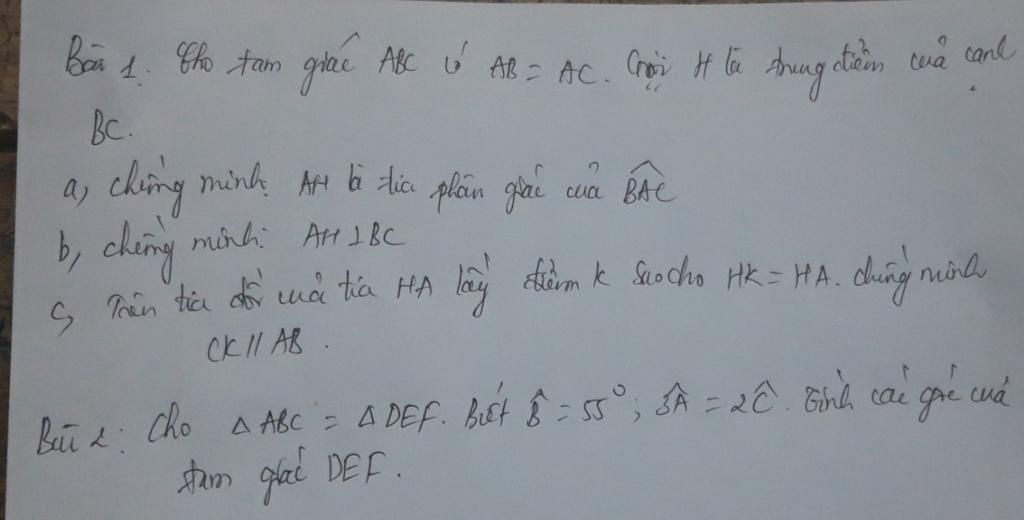 Bài 1. Cho tam giác ABC có AB = AC. Gọi H là trung điểm của cạnh
BC.
a, chứng minh: AH là tia phân giác của \widehat{BAC}
b, chứng minh: AH ⊥ BC
c, Trên tia đối của tia HA lấy điểm K sao cho HK = HA. chứng minh
CK // AB.
Bài 2: Cho Δ ABC = Δ DEF. Biết \hat{B} = 55°; 3\hat{A} = 2\hat{C}. Tính các góc của
tam giác DEF.